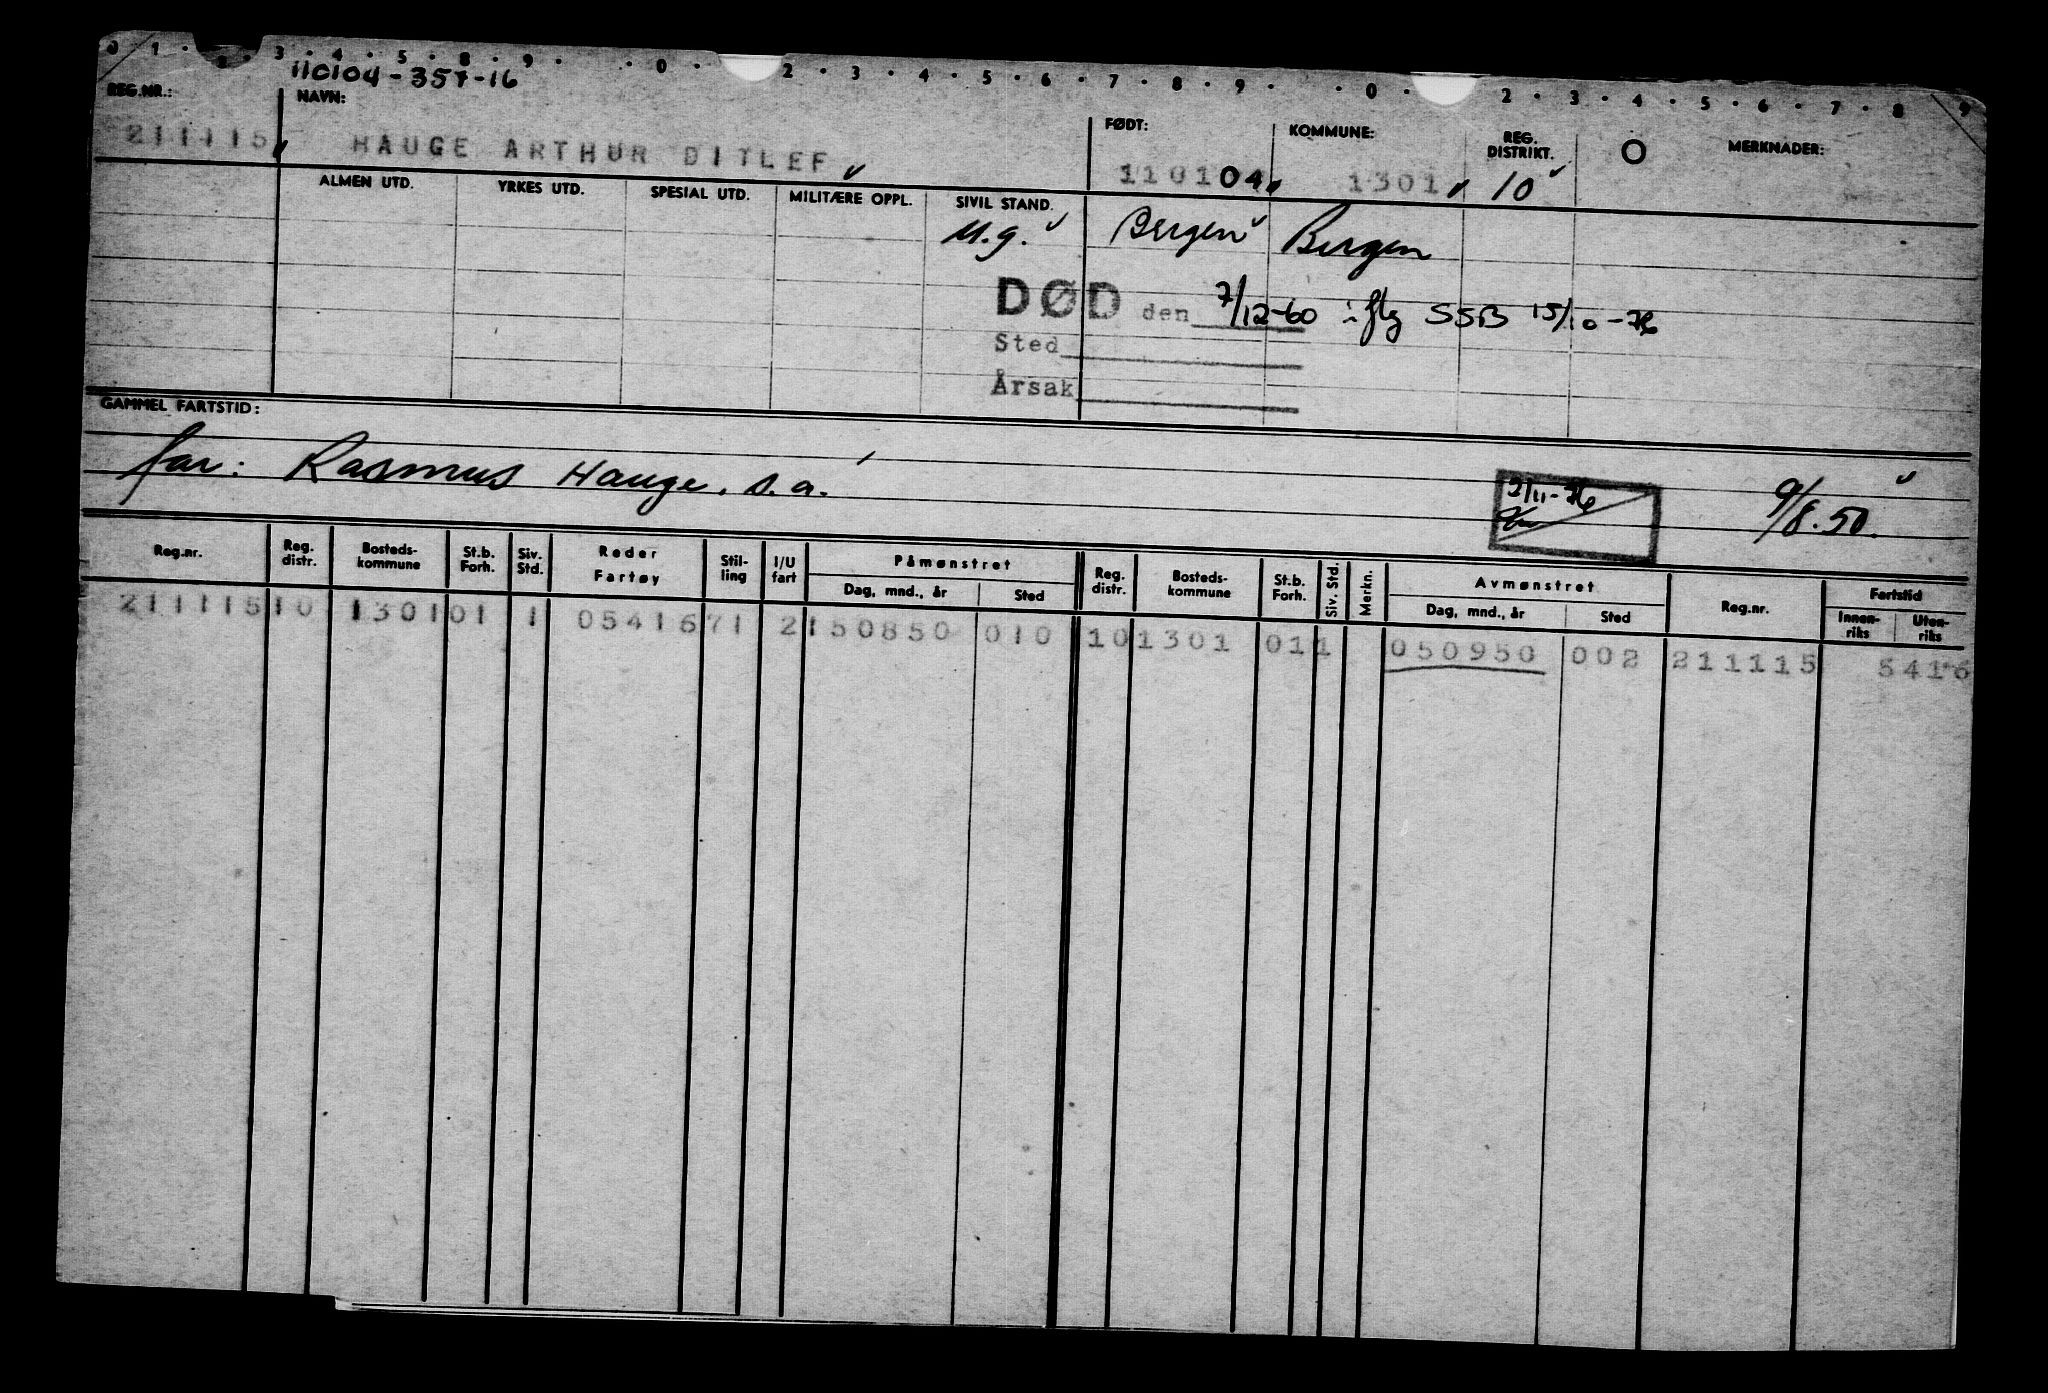 0 1 · 3 · 4 · 5 · 8 · 9 · · 0 · 2 · 3 · 4 · 5 · 6 · 7 · 8 · 9 · · 0 · 2 · 3 · 4 · 5 · 6 · 7 · 8 9
110104-357-16
REG.NR.: NAVN: FØDT: KOMMUNE: REG. DISTRIKT. O MERKNADER:
211115 HAUGE ARTHUR DITLEF 110104 1301 10
ALMEN UTD. YRKES UTD. SPESIAL UTD. MILITÆRE OPPL. SIVIL STAND.
U.g. Bergen Bergen
DØD den 7/12-60 iflg SSB 15/10-76
Sted
Årsak
GAMMEL FARTSTID:
far: Rasmus Hauge. s.a. 2/11-76 9/8.50.
Reg.nr. Reg. distr. Bosteds-kommune St.b. Forh. Siv. Std. Reder Fartøy Stil-ling I/U fart Påmønstret Dag, mnd., år Sted Reg. distr. Bosteds-kommune St.b. Forh. Siv. Std. Merkn. Avmønstret Dag, mnd., år Sted Reg.nr. Fartstid Innen-riks Uten-riks
211115 10 1301 01 1 05416 71 2 150850 010 10 1301 01 1 050950 002 211115 5416